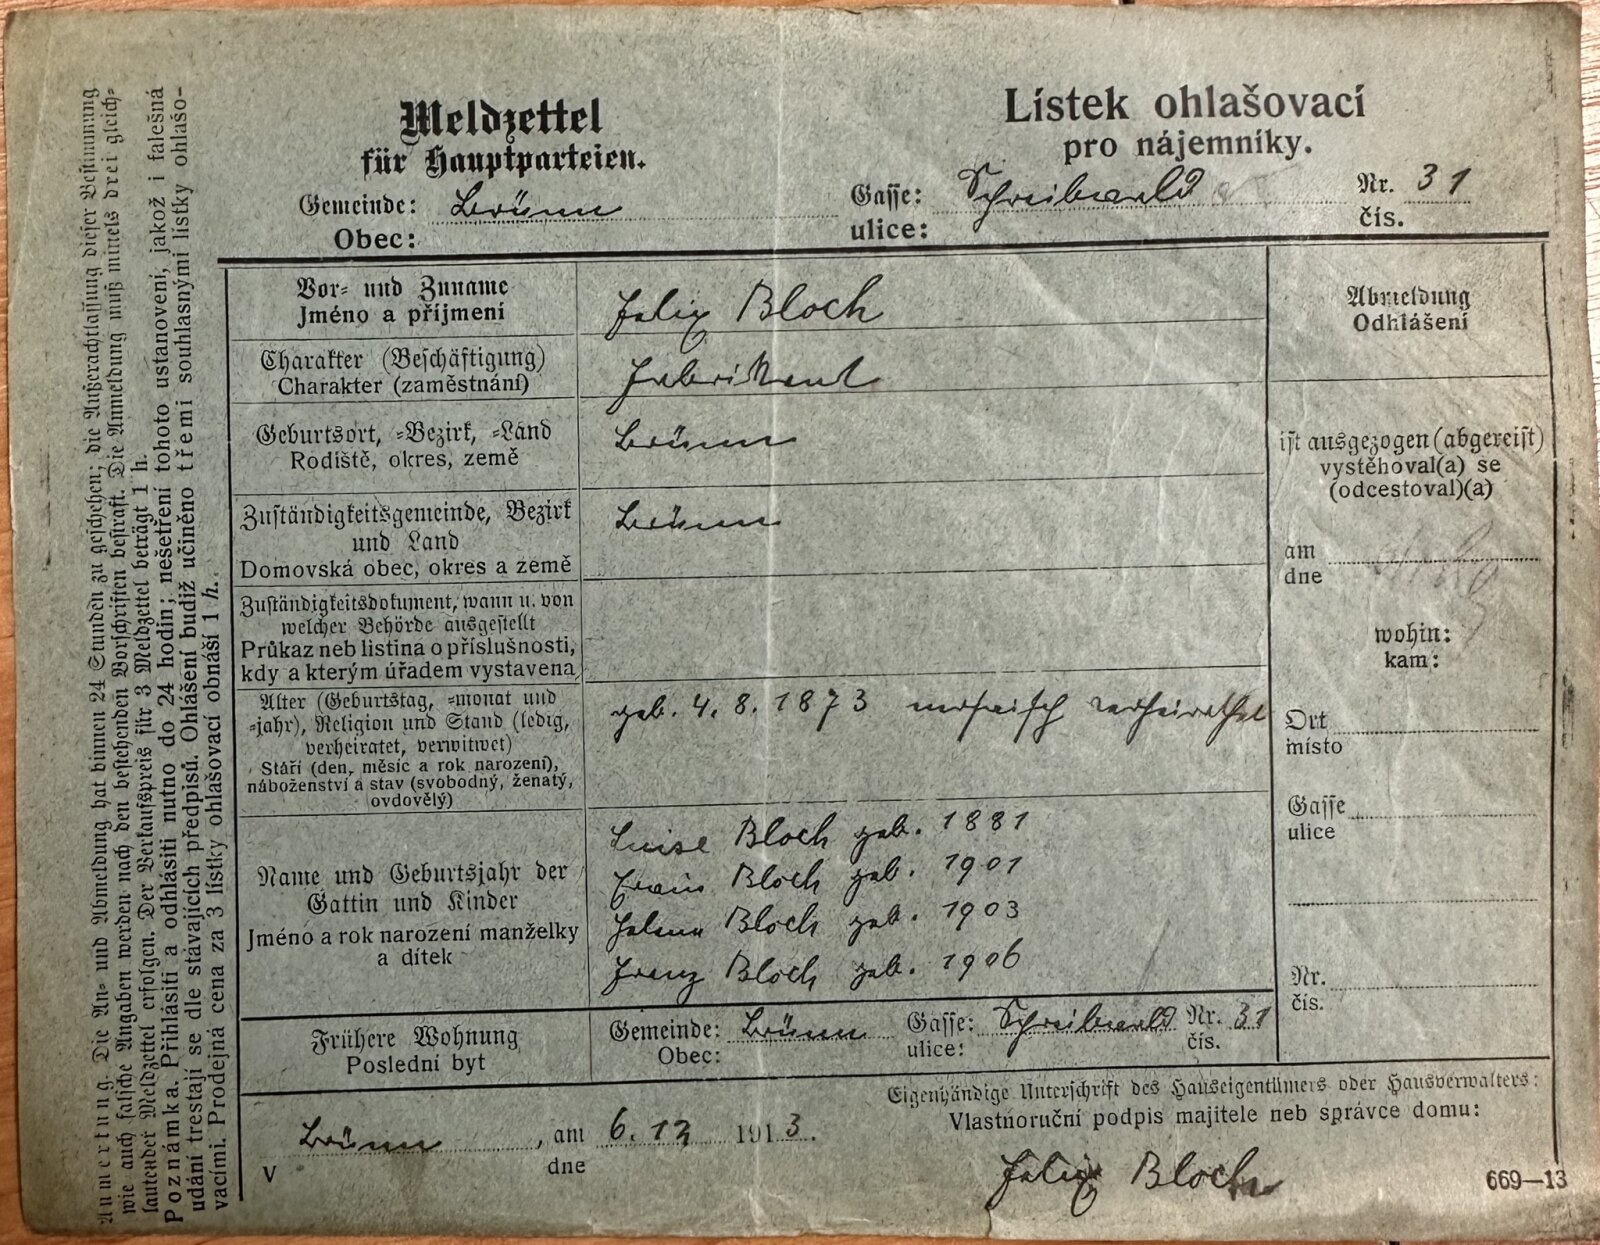 Meldzettel
für Hauptparteien.
Lístek ohlašovací
pro nájemníky.
Gemeinde: Brünn Gasse: Schreibwald Nr. 31
Obec: ulice: čís.
Vor- und Zuname
Jméno a příjmení
Felix Bloch
Charakter (Beschäftigung)
Charakter (zaměstnání)
Fabrikant
Geburtsort, -Bezirk, -Land
Rodiště, okres, země
Brünn
Zuständigkeitsgemeinde, Bezirk
und Land
Domovská obec, okres a země
Brünn
Zuständigkeitsdokument, wann u. von
welcher Behörde ausgestellt
Průkaz neb listina o příslušnosti,
kdy a kterým úřadem vystavena
Alter (Geburtstag, -monat und
-jahr), Religion und Stand (ledig,
verheiratet, verwitwet)
Stáří (den, měsíc a rok narození),
náboženství a stav (svobodný, ženatý,
ovdovělý)
geb. 4. 8. 1873 mosaisch verheirathet
Name und Geburtsjahr der
Gattin und Kinder
Jméno a rok narození manželky
a dítek
Luise Bloch geb. 1881
Bloch geb. 1901
Helene Bloch geb. 1903
Franz Bloch geb. 1906
Frühere Wohnung
Poslední byt
Gemeinde: Brünn Gasse: Schreibwald Nr. 31
Obec: ulice: čís.
Abmeldung
Odhlášení
ist ausgezogen (abgereist)
vystěhoval(a) se
(odcestoval)(a)
am
dne
wohin:
kam:
Ort
místo
Gasse
ulice
Nr.
čís.
Brünn, am 6. 12 1913.
V dne
Eigenhändige Unterschrift des Hauseigentümers oder Hausverwalters:
Vlastnoruční podpis majitele neb správce domu:
Felix Bloch
669—13
Anmerkung. Die An- und Abmeldung hat binnen 24 Stunden zu geschehen; die Außerachtlassung dieser Bestimmung
wie auch falsche Angaben werden nach den bestehenden Vorschriften bestraft. Die Anmeldung muß mittels drei gleich-
lautender Meldzettel erfolgen. Der Verkaufspreis für 3 Meldzettel beträgt 1 h.
Poznámka. Přihlásiti a odhlásiti nutno do 24 hodin; nešetření tohoto ustanovení, jakož i falešná
udání trestají se dle stávajících předpisů. Ohlášení budiž učiněno třemi souhlasnými lístky ohlašo-
vacími. Prodejná cena za 3 lístky ohlašovací obnáší 1 h.